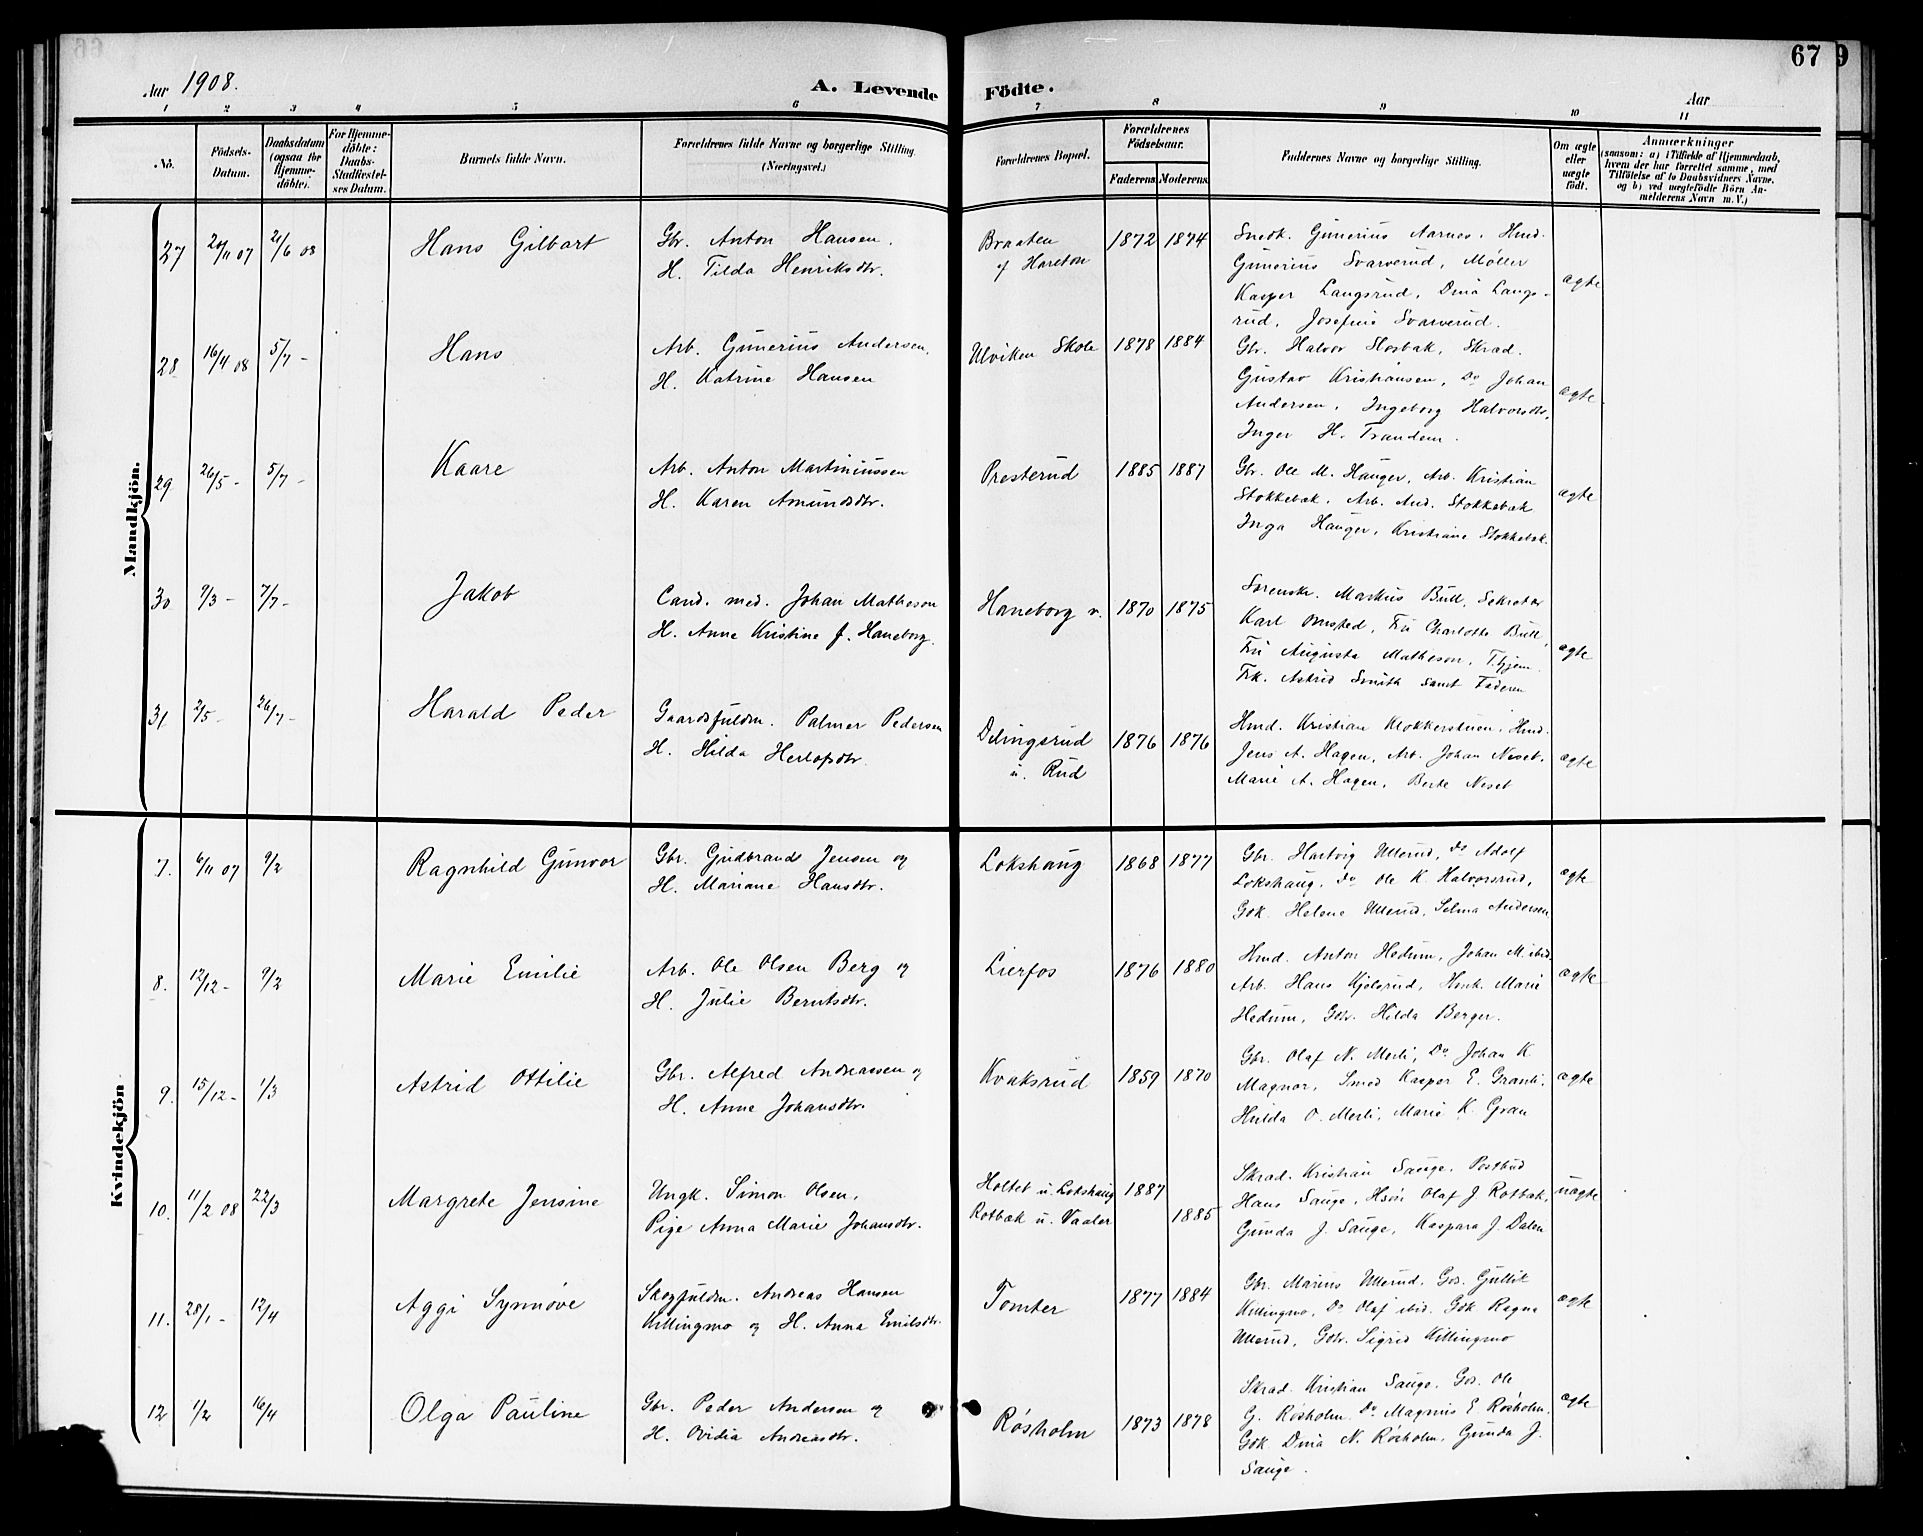 67
9
Aar 1908.
A. Levende Födte.
Aar
1 2 3 4 5 6 7 8 9 10 11
No.
Födsels-Datum.
Daabsdatum (ogsaa for Hjemme-döbte).
For Hjemme-döbte: Daabs-Stadfæstel-ses Datum.
Barnets fulde Navn.
Forældrenes fulde Navne og borgerlige Stilling (Næringsvei.)
Forældrenes Bopæl.
Forældrenes Födselsaar.
Faderens. Moderens.
Faddernes Navne og borgerlig Stilling.
Om ægte eller uægte födt.
Anmærkninger
(saasom: a) i Tilfælde af Hjemmedaab,
hvem der har forrettet samme, med
Tilföielse af to Daabsvidners Navne,
og b) ved uægtefödte Börn An-
melderens Navn m. V.)
Mandkjön.
27 20/11 07 21/6 08 Hans Gilbart
Gbr. Anton Hansen.
H. Tilda Henriksdtr.
Braaten
af Hareton
1872 1874
Snedk. Gunerius Aarnes, Hmd.
Gunerius Svarverud, Møller
Kasper Langsrud, Dina Langs-
rud, Josefine Svarverud.
ægte
28 16/4 08 5/7 - Hans
Arb. Gunerius Andersen,
H. Katrine Hansen
Ulviken Skole 1878 1884
Gbr. Halvor Storbak, Skrad.
Gustav Kristiansen, Do Johan
Andersen, Ingeborg Halvorsdtr,
Inger H. Trandem.
ægte
29 26/5 - 5/7 - Kaare
Arb. Anton Martiniussen
H. Karen Amundsdtr.
Presterud 1885 1887
Gbr. Ole M. Hauger, Arb. Kristian
Stokkebæk, Arb. And. Stokkebæk
Inga Hauger, Kristiane Stokkebæk.
ægte
30 9/3 - 7/7 - Jakob
Cand. med. Johan Matheson
H. Anne Kristine f. Haneborg.
Haneborg v. 1870 1875
Sorenskr. Markus Bull, Sekretær
Karl Omsted, Fru Charlotte Bull,
Fru Augusta Matheson, T. hjem.
Frk. Astrid Smith samt Faderen
ægte
31 2/5 - 26/7 - Harald Peder
Gaardsfuldm. Palmer Pedersen
H. Hilda Herlofsdtr.
Dilingsrud
u. Rud
1876 1876
Hmd. Kristian Klokkerstuen, Hmd.
Jens A. Hagen, Arb. Johan Neset,
Marie A. Hagen, Berte Neset
ægte
Kvindekjön
7. 6/11 07 9/2 Ragnhild Gunvor
Gbr. Gudbrand Jensen og
H. Mariane Hansdtr.
Lokshaug 1868 1877
Gbr. Hartvig Ullerud, Do Adolf
Lokshaug, Do Ole K. Halvorsrud,
Gbk. Helene Ullerud, Selma Andersen
ægte
8. 12/12 - 9/2 Marie Emilie
Arb. Ole Olsen Berg og
H. Julie Berntsdtr.
Lierfos 1876 1880
Hmd. Anton Hedum, Johan M. ibid.
Arb. Hans Kjølsrud, Hmk. Marie
Hedum, Gdr. Hilda Berger.
ægte
9. 15/12 - 1/3 Astrid Ottilie
Gbr. Alfred Andreassen og
H. Anne Johansdtr.
Kvaksrud 1859 1870
Gbr. Olaf N. Merli, Do Johan K.
Magnor, Smed Kasper E. Granli,
Hulda O. Merli, Marie K. Gran
ægte
10. 11/2 08 22/3 Margrete Jensine
Ungk. Simon Olsen,
Pige Anna Marie Johansdtr.
Holtet u. Lokshaug 1887
Rotbæk u. Vaaler 1885
Skrad. Kristian Sauge, Postbud
Hans Sauge, Hsøn Olaf J. Rotbæk,
Gunda J. Sauge, Kaspara J. Dalen
uægte
11. 28/1 - 12/4 Aggi Synnöve
Skogfuldm. Andreas Hansen
Killingmo og H. Anna Emilsdtr.
Tomter 1877 1884
Gbr. Marius Ullerud, Gds. Gullik
Killingmo, Do Olaf ibid. Gbk Ragna
Ullerud, Gdr. Sigrid Killingmo
ægte
12 1/2 16/4 Olga Pauline
Gbr. Peder Andersen og
H. Ovidia Andreasdtr.
Røsholm 1873 1878
Skrad. Kristian Sauge, Gds. Ole
G. Røsholm, Do Magnus E Røsholm,
Gbk. Dina N. Røsholm, Gunda J.
Sauge.
ægte